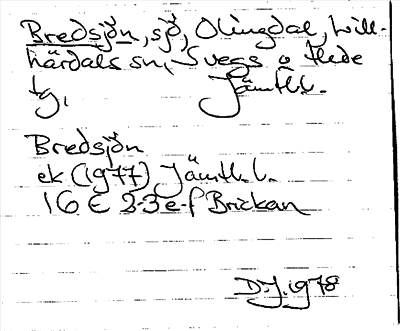 Bredsjön, sjö, Olingdal, Lill-
härdals sn, Svegs o Hede
tg, Jämtl.l.
Bredsjön
ek (1977) Jämtl.l.
16 E 2-3 e-f Brickan
D.J. 1978